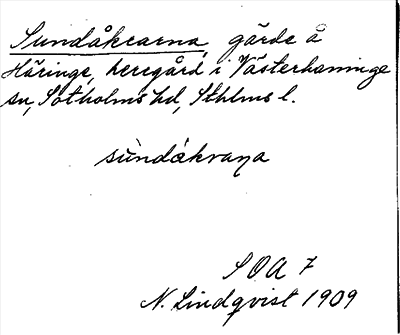 Sundåkrarna, gärde å
Häringe, herrgård i Västerhaninge
sn, Sotholms hd, Sthlms l.
sùndåkraɳa
SOA 7
N. Lindqvist 1909